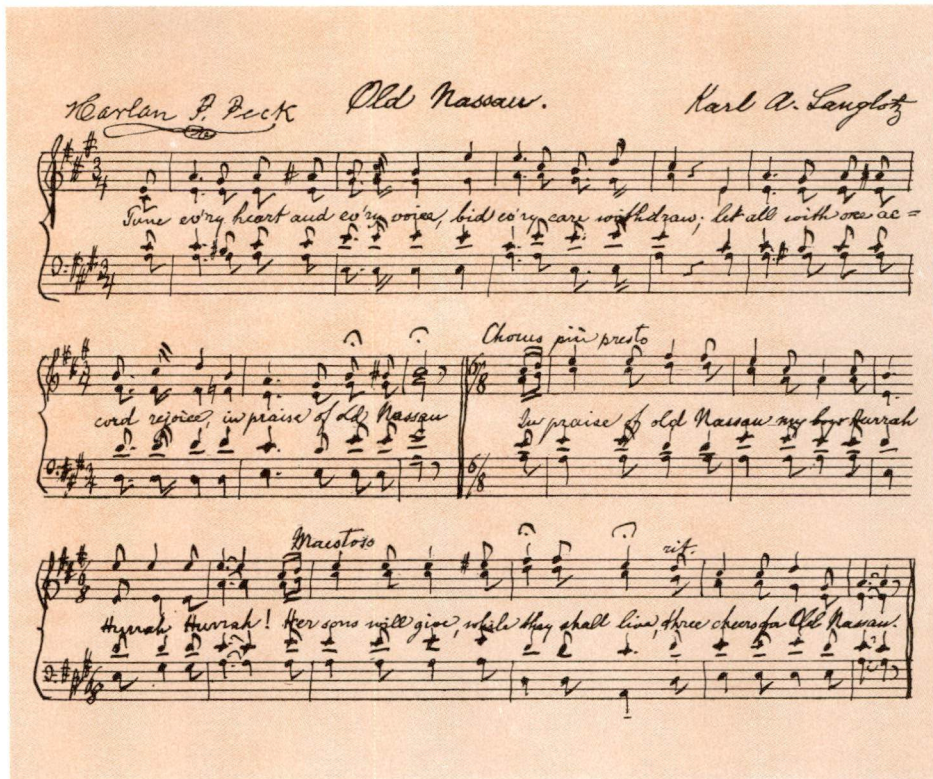 Harlan P. Peck Old Nassau. Karl A. Langlotz
3/4
Tune ev'ry heart and ev'ry voice, bid ev'ry care withdraw; let all with one ac=
3/4
Chorus più presto
3/4 6/8
cord rejoice, in praise of old Nassau In praise of old Nassau my boys Hurrah
3/4 6/8
Maestoso rit.
6/8
Hurrah Hurrah! Her sons will give, while they shall live, three cheers for Old Nassau.
6/8